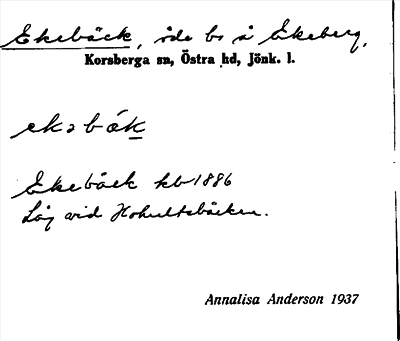 Ekebäck, öde bs å Ekeberg,
Korsberga sn, Östra hd, Jönk. l.
ekəbäk
Ekebäck kb 1886
Låg vid Hohultsbäcken.
Annalisa Anderson 1937